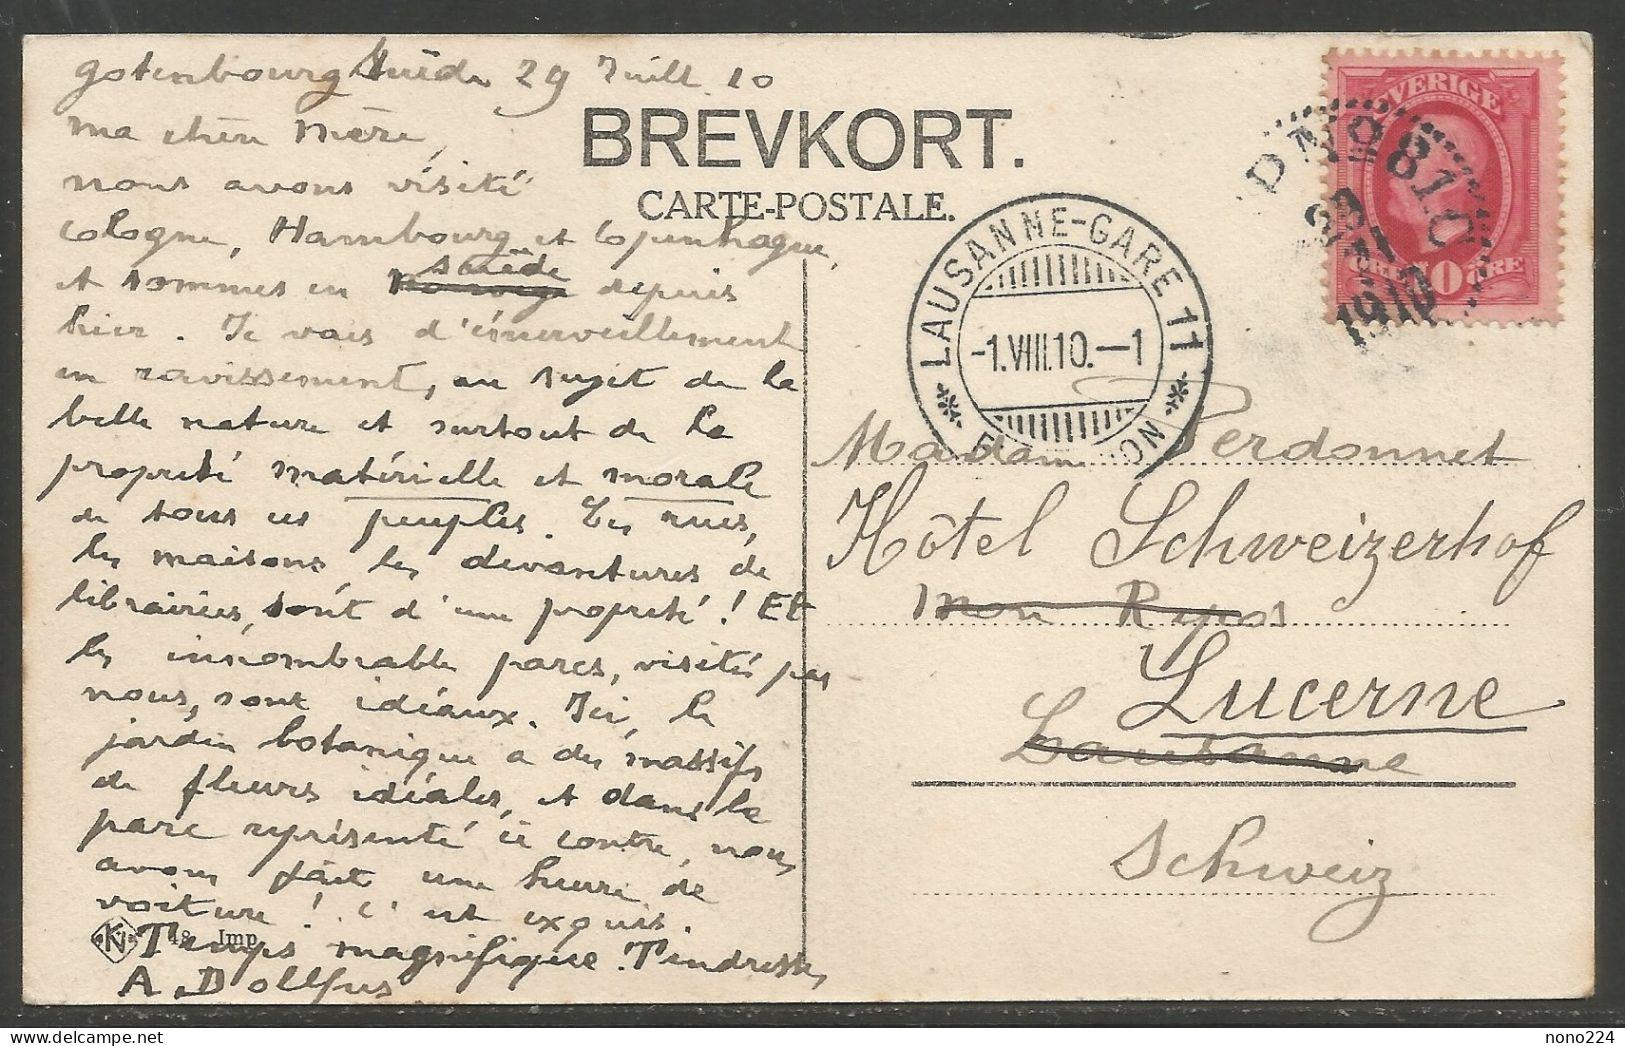 gotenbourg Suède 29 Juill 10
ma chère Mère,
nous avons visité
Cologne, Hambourg et Copenhague,
suède
et sommes en Norvège depuis
hier. Je vais d'émerveillement
en ravissement, au sujet de la
belle nature et surtout de la
propreté matérielle et morale
de tous ces peuples. Les rues,
les maisons, les devantures de
librairies, sont d'une propreté! Et
les innombrable parcs, visités par
nous, sont idéaux. Ici, le
jardin botanique a des massifs
de fleurs idéales, et dans le
parc représenté ci contre, nous
avons fait une heure de
voiture! C'est exquis.
Temps magnifique. Tendresses,
A. Dollfus
48 Imp
BREVKORT.
CARTE-POSTALE.
LAUSANNE-GARE 11
-1.VIII.10.-1
SVERIGE
ÖRE 10 ÖRE
1910
Madame Perdonnet
Hôtel Schweizerhof
Mon Repos
Lucerne
Lausanne
Schweiz
www.delcampe.net
nono224